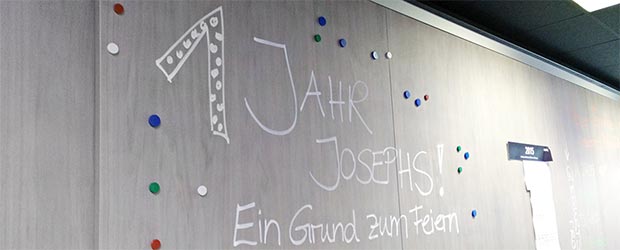 1 JAHR
JOSEPHS!
Ein Grund zum Feiern
2015